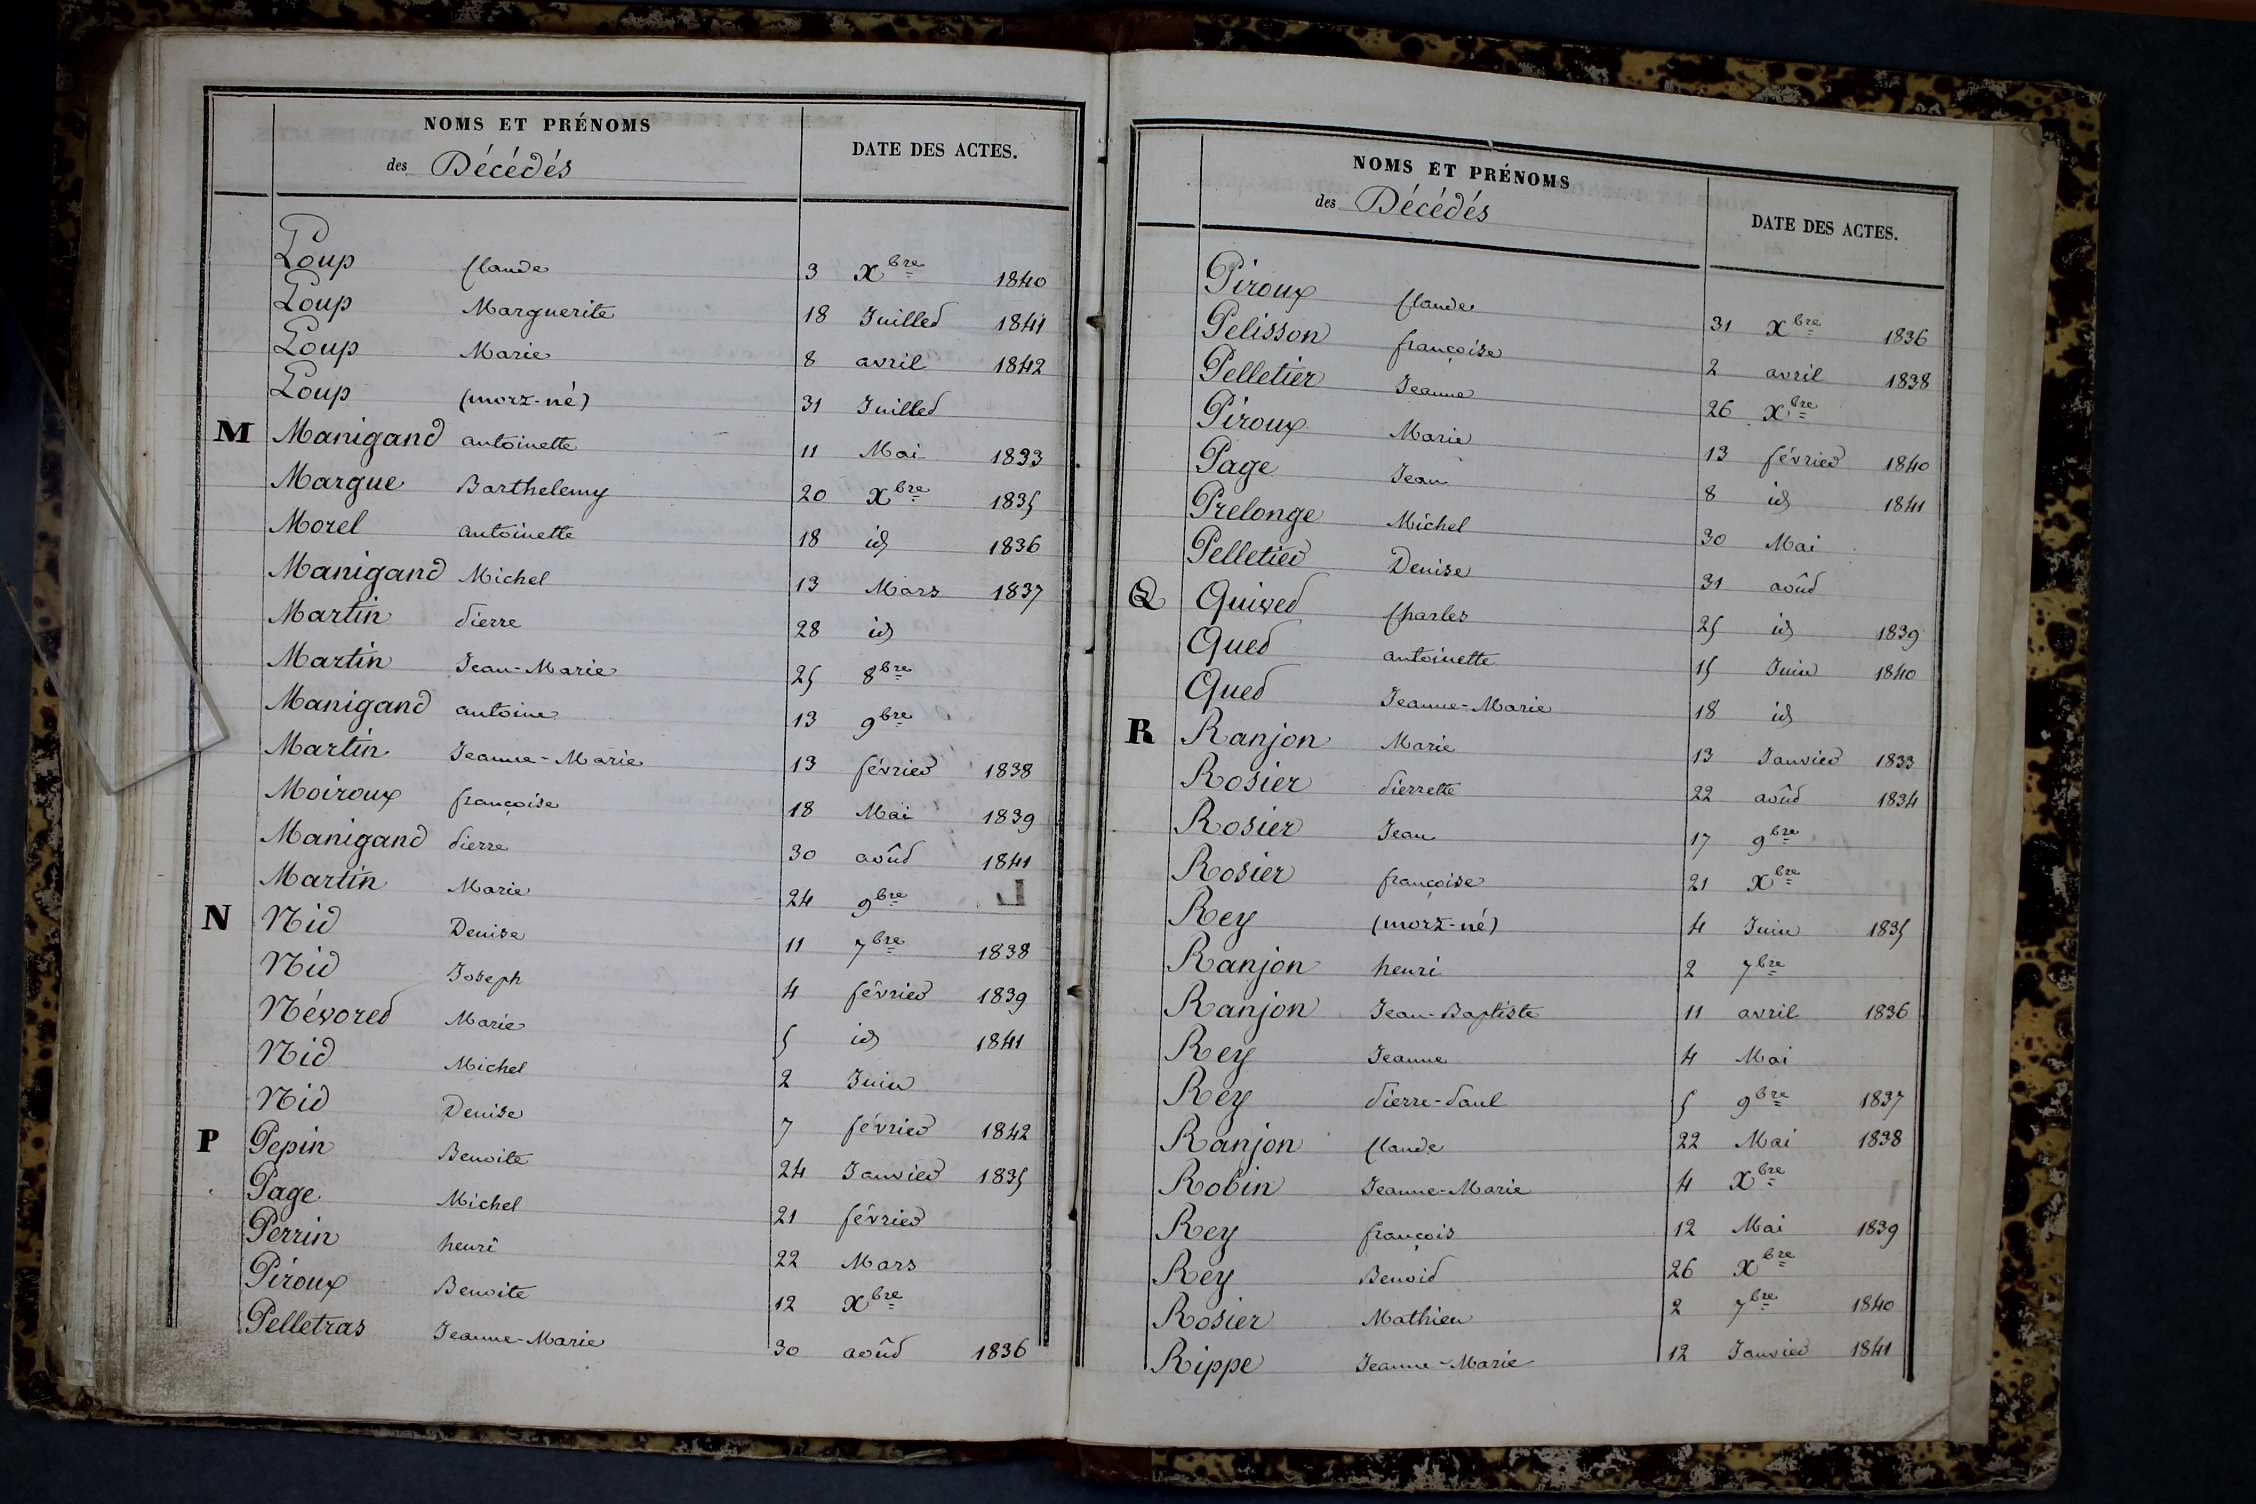 NOMS ET PRÉNOMS
des Décédés
DATE DES ACTES.
Loup Claude 3 Xbre 1840
Loup Marguerite 18 Juillet 1841
Loup Marie 8 avril 1842
Loup (mort-né) 31 Juillet
M Manigand antoinette 11 Mai 1833
Margue Barthelemy 20 Xbre 1835
Morel antoinette 18 id 1836
Manigand Michel 13 Mars 1837
Martin Pierre 28 id
Martin Jean-Marie 25 8bre
Manigand antoine 13 9bre
Martin Jeanne-Marie 13 février 1838
Moiroux françoise 18 Mai 1839
Manigand Pierre 30 août 1841
Martin Marie 24 9bre
N Nid Denise 11 7bre 1838
Nid Joseph 4 février 1839
Névoret Marie 5 id 1841
Nid Michel 2 Juin
Nid Denise 7 février 1842
P Pepin Benoite 24 Janvier 1835
Page Michel 21 février
Perrin henri 22 Mars
Piroux Benoite 12 Xbre
Pelletras Jeanne-Marie 30 août 1836
NOMS ET PRÉNOMS
des Décédés
DATE DES ACTES.
Piroux Claude 31 Xbre 1836
Pelisson françoise 2 avril 1838
Pelletier Jeanne 26 Xbre
Piroux Marie 13 février 1840
Page Jean 8 id 1841
Prelonge Michel 30 Mai
Pelletier Denise 31 août
Q Quivet Charles 25 id 1839
Quet antoinette 15 Juin 1840
Quet Jeanne-Marie 18 id
R Ranjon Marie 13 Janvier 1833
Rosier Pierrette 22 août 1834
Rosier Jean 17 9bre
Rosier françoise 21 Xbre
Rey (mort-né) 4 Juin 1835
Ranjon henri 2 7bre
Ranjon Jean-Baptiste 11 avril 1836
Rey Jeanne 4 Mai
Rey Pierre-Paul 5 9bre 1837
Ranjon Claude 22 Mai 1838
Robin Jeanne-Marie 4 Xbre
Rey françois 12 Mai 1839
Rey Benoit 26 Xbre
Rosier Mathieu 2 7bre 1840
Rippe Jeanne-Marie 12 Janvier 1841